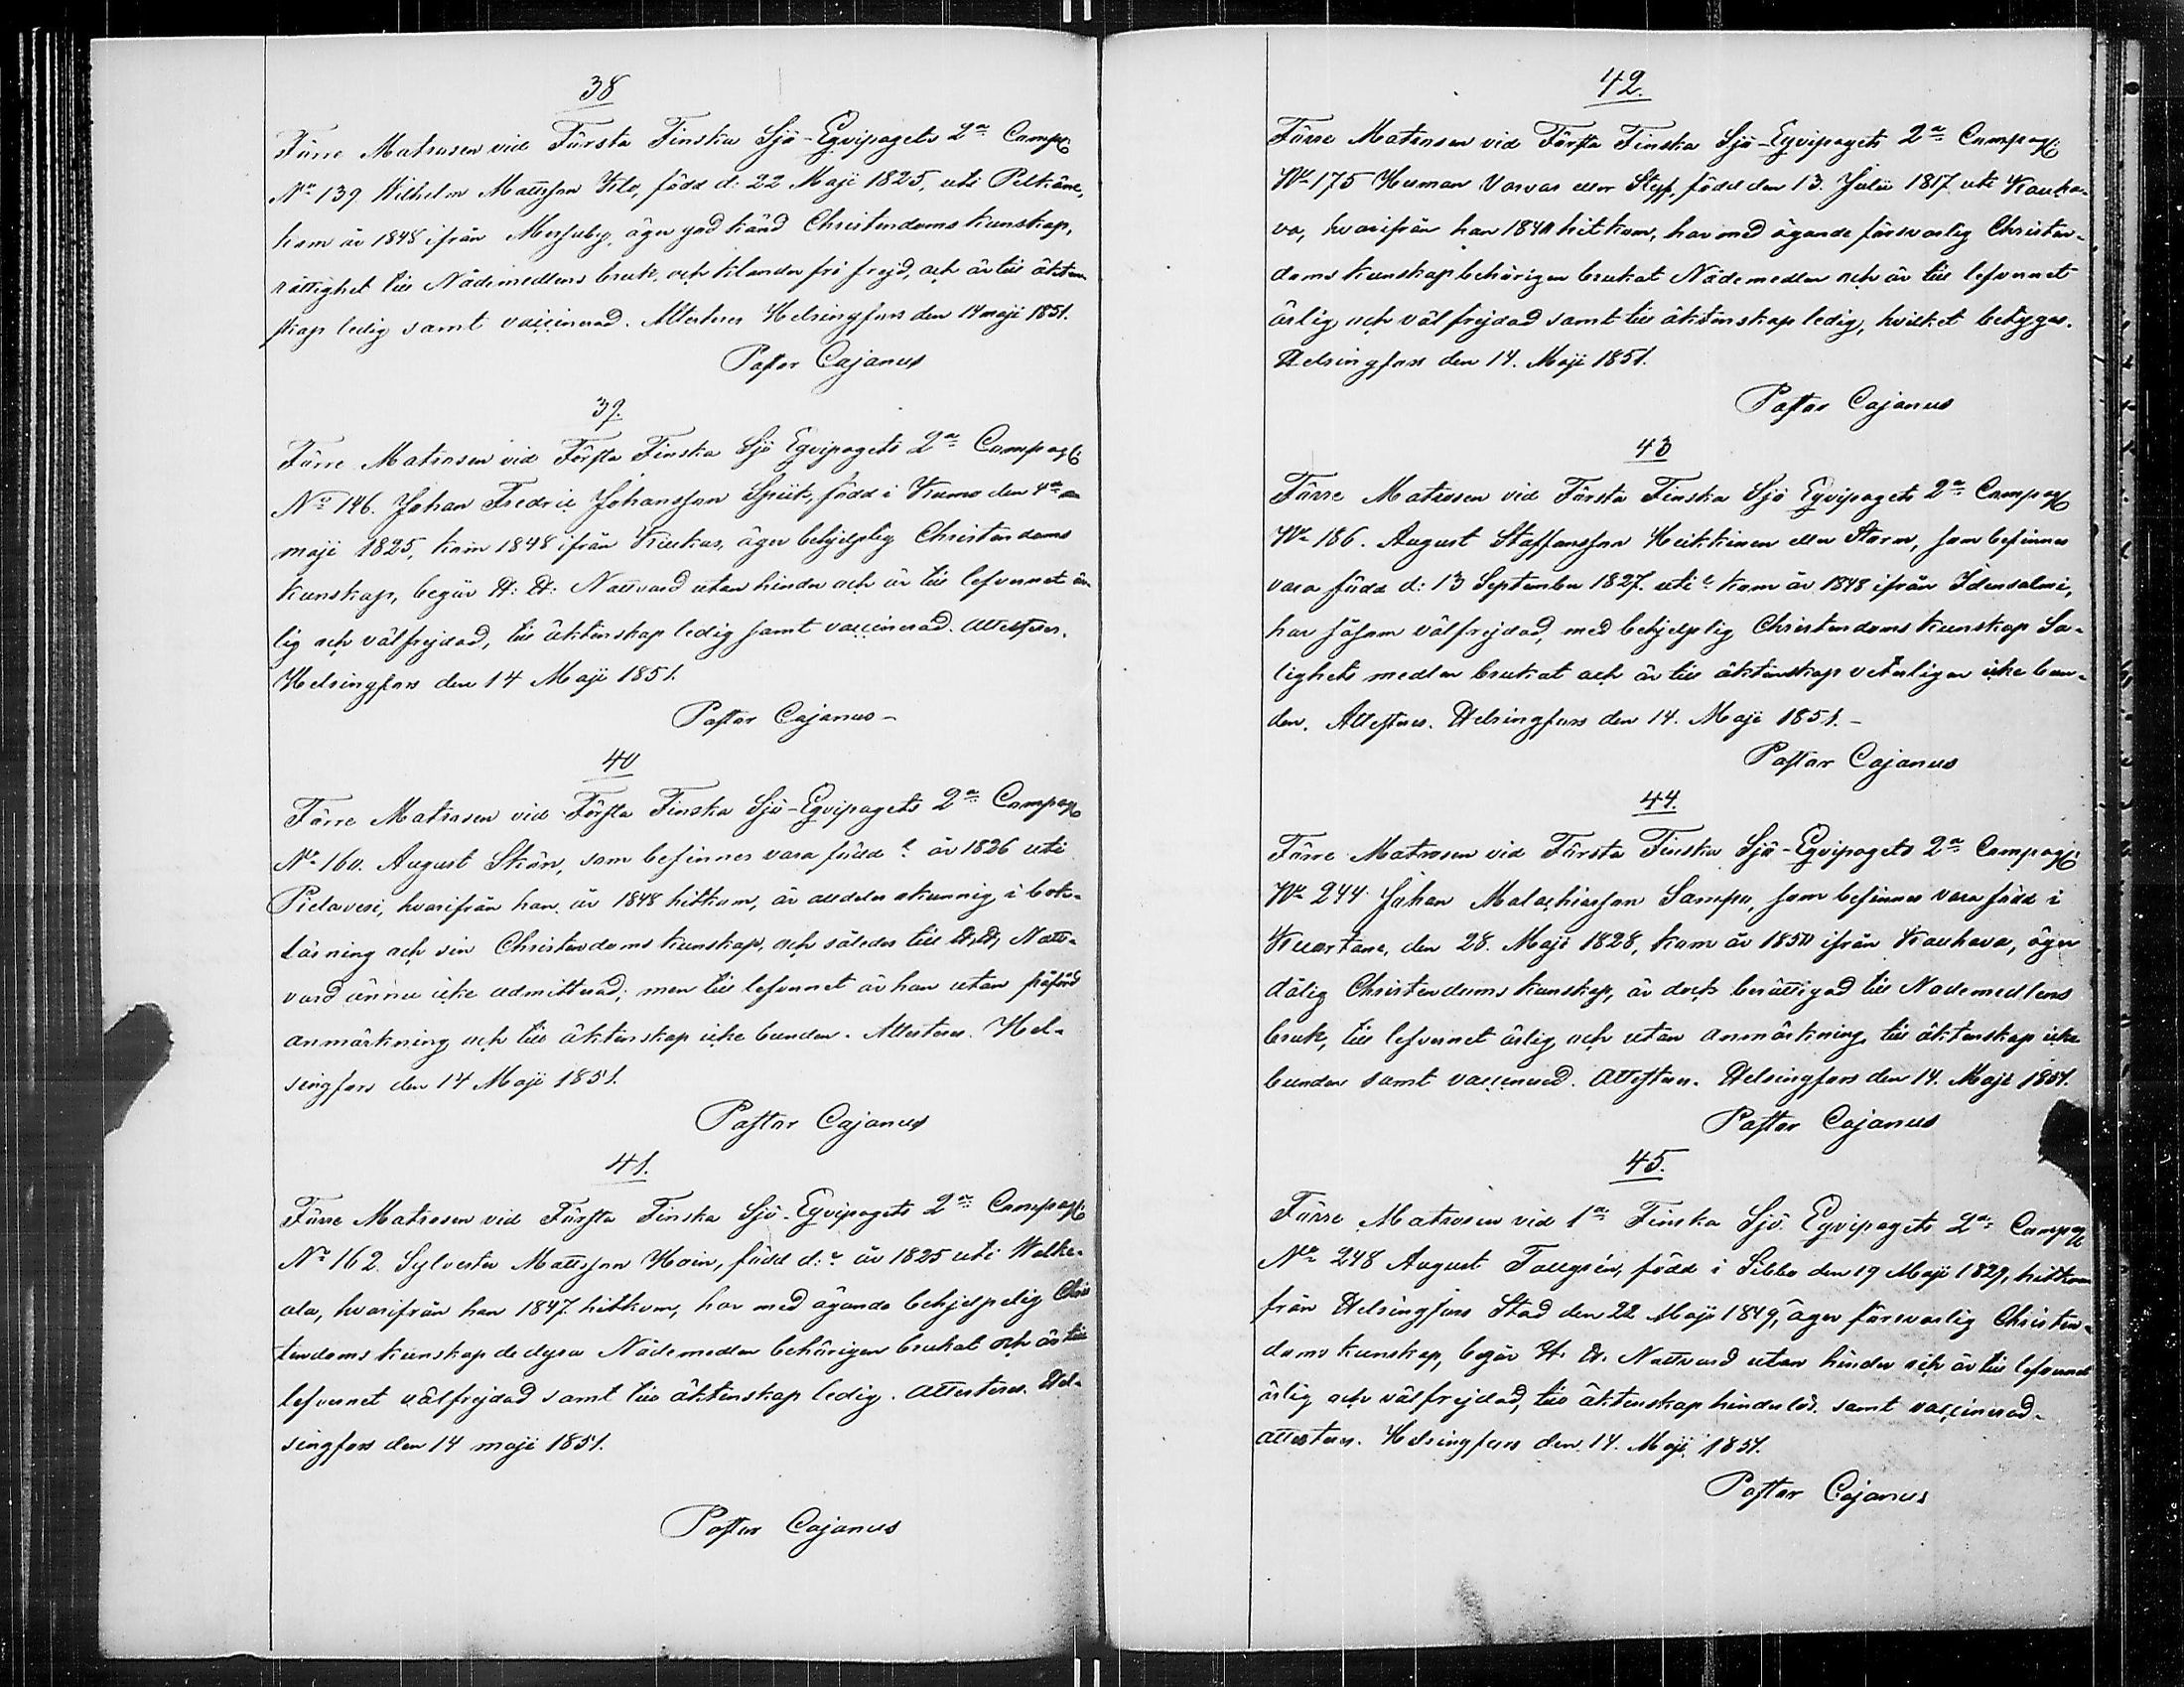 38
Förre Matrosen vid Första Finska Sjö-Eqvipagets 2a Comp:
No 139 Wilhelm Mattsson Kilo, född d: 22 Maji 1825, uti Pelkäne,
kom år 1848 ifrån Messuby, äger god känd Christendoms kunskap,
rättighet till Nådemedlens bruk, och klander fri frejd, och är till äkten-
skap ledig samt vaccinerad. Attesteres Helsingfors den 14 maji 1851.
Pastor Cajanus
39.
Förre Matrosen vid Första Finska Sjö Eqvipagets 2a Compag:
No 146. Johan Fredric Johansson Spiik, född i Kumo den 4de
maji 1825, kom 1848 ifrån Kiukas, äger behjelplig Christendoms
kunskap, begår H: H: Nattvard utan hinder och är till lefvernet är-
lig och välfrejdad, till äktenskap ledig samt vaccinerad. Attesteres.
Helsingfors den 14 Maji 1851.
Pastor Cajanus -
40
Förre Matrosen vid Första Finska Sjö-Eqvipagets 2a Compag:
No 160. August Skön, som befinnes vara född ? år 1826 uti
Pielavesi, hvarifrån han år 1848 hitkom, är alldeles okunnig i bok-
läsning och sin Christendoms kunskap, och således till H, H, Natt-
vard ännu icke admitterad; men till lefvernet är han utan påförd
anmärkning och till äktenskap icke bunden. Attesteres. Hel-
singfors den 14 Maji 1851.
Pastor Cajanus
41.
Förre Matrosen vid Första Finska Sjö-Eqvipagets 2a Compag:
No 162. Sylvester Mattsson Hoin, född d: ? år 1825 uti Walke-
ala, hvarifrån han 1847 hitkom, har med ägande behjelpelig Chris
tendoms kunskap de dyra Nådemedlen behörigen brukat och är till
lefvernet välfrejdad samt till äktenskap ledig. Attesteres. Hel-
singfors den 14 maji 1851.
Pastor Cajanus
42.
Förre Matrosen vid Första Finska Sjö-Eqvipagets 2a Compag:
No 175 Herman Varvas eller Styf, född den 13. Julii 1817 uti Kauha-
va, hvarifrån han 1840 hitkom, har med ägande försvarlig Christen-
doms kunskap behörigen brukat Nådemedlen och är till lefvernet
ärlig och välfrejdad samt till äktenskap ledig, hvilket betygas.
Helsingfors den 14. Maji 1851.
Pastor Cajanus
43
Förre Matrosen vid Första Finska Sjö Eqvipagets 2a Compag:
No 186. August Staffansson Heikkinen eller Storm, som befinnes
vara född d: 13 September 1827. uti ? kom år 1848 ifrån Idensalmi,
har såsom välfrejdad, med behjelplig Christendoms kunskap Sa-
lighets medlen brukat och är till äktenskap veterligen icke bun-
den. Attesteres. Helsingfors den 14. Maji 1851. -
Pastor Cajanus
44.
Förre Matrosen vid Första Finska Sjö-Eqvipagets 2a Compag:
No 244 Johan Malachiasson Sampo, som befinnes vara född i
Kuortane, den 28. Maji 1828, kom år 1850 ifrån Kauhava, äger
dålig Christendoms kunskap, är dock berättigad till Nådemedlens
bruk, till lefvernet ärlig och utan anmärkning, till äktenskap icke
bunden samt vaccinerad. Attesteres. Helsingfors den 14. Maji 1851.
Pastor Cajanus
45.
Förre Matrosen vid 1a Finska Sjö Eqvipagets 2a Compag:
No 248 August Tallgrén, född i Sibbo den 19 Maji 1829, hitkom
från Helsingfors Stad den 22 Maji 1849, äger försvarlig Christen-
doms kunskap, begår H. H. Nattvard utan hinder och är till lefvernet
ärlig och välfrejdad, till äktenskap hinderlös samt vaccinerad.
Attesteres. Helsingfors den 14. Maji 1851.
Pastor Cajanus